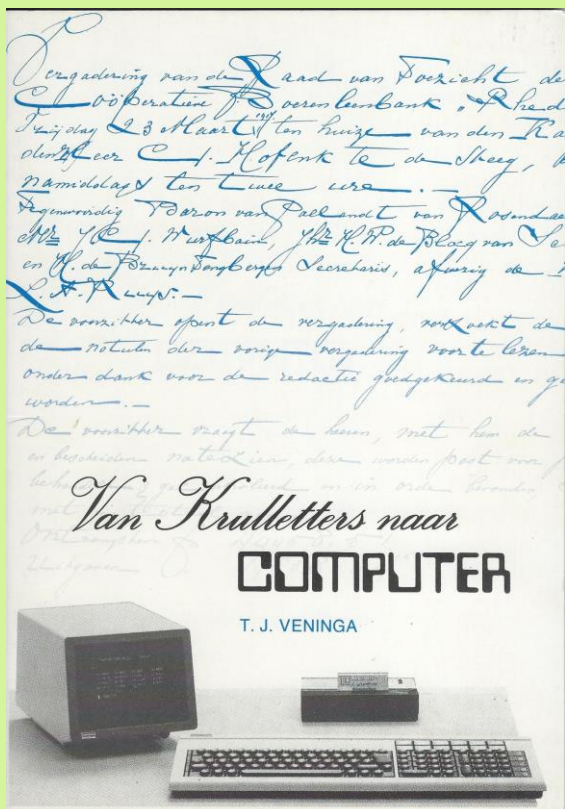 Vergadering van den Raad van Toezicht de
Coöperatieve Boerenleenbank "Rhed
Vrijdag 23 Maart ten huize van den
den Heer C. J. Hofenk te de Steeg,
namiddags ten twee ure. —
Tegenwoordig Baron van Pallandt van Rosendae
Mr J. C. J. Wurfbain, Jhr H. W. de Blocq van
en H. de Bruyn Secretaris, afwezig de
L. A. Ruys. —
De voorzitter opent de vergadering, verzoekt de
de notulen der vorige vergadering voor te lezen
onder dank voor de redactie goedgekeurd en
worden. —
De voorzitter vraagt de heeren, met hem de
en bescheiden na te zien, deze worden post voor
en in orde bevonden,
Van Krulletters naar
COMPUTER
T. J. VENINGA